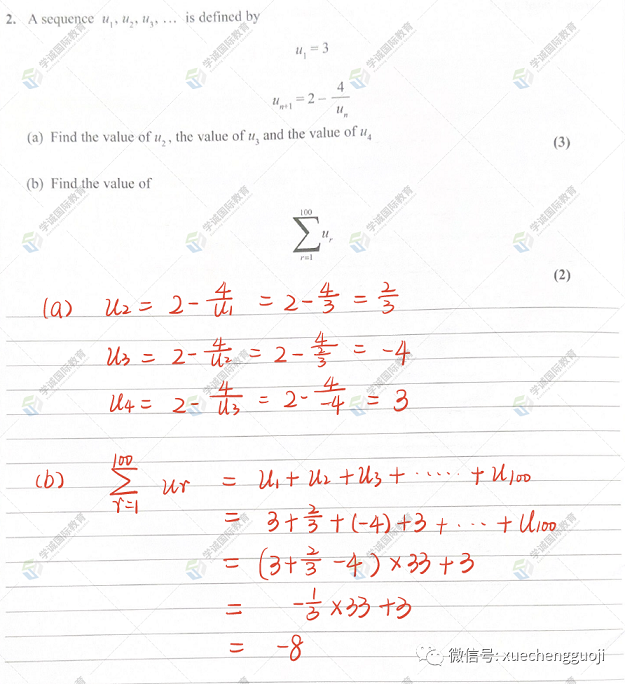 2. A sequence u₁, u₂, u₃, … is defined by
u₁ = 3
uₙ₊₁ = 2 − 4/uₙ
(a) Find the value of u₂, the value of u₃ and the value of u₄
(3)
(b) Find the value of
∑_{r=1}^{100} uᵣ
(2)
(a) u₂ = 2 - 4/u₁ = 2 - 4/3 = 2/3
u₃ = 2 - 4/u₂ = 2 - 4/(2/3) = -4
u₄ = 2 - 4/u₃ = 2 - 4/-4 = 3
(b) ∑_{r=1}^{100} uᵣ = u₁ + u₂ + u₃ + ····· + u₁₀₀
= 3 + 2/3 + (-4) + 3 + ··· + u₁₀₀
= (3 + 2/3 - 4) × 33 + 3
= -1/3 × 33 + 3
= -8
微信号: xuechengguoji
学诚国际教育